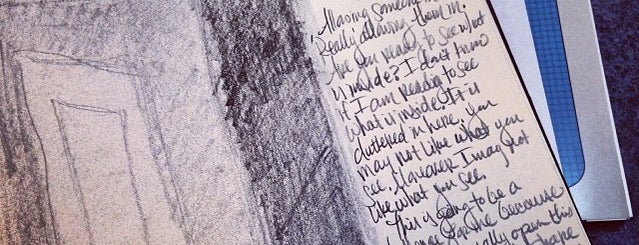 Allowing someone
Really allowing them in.
Are you ready to see what
is inside? I don't know
if I am ready to see
what is inside. It is
cluttered in here, you
may not like what you
see. Moreover I may not
like what you see.
This is going to be a
for me because
open this